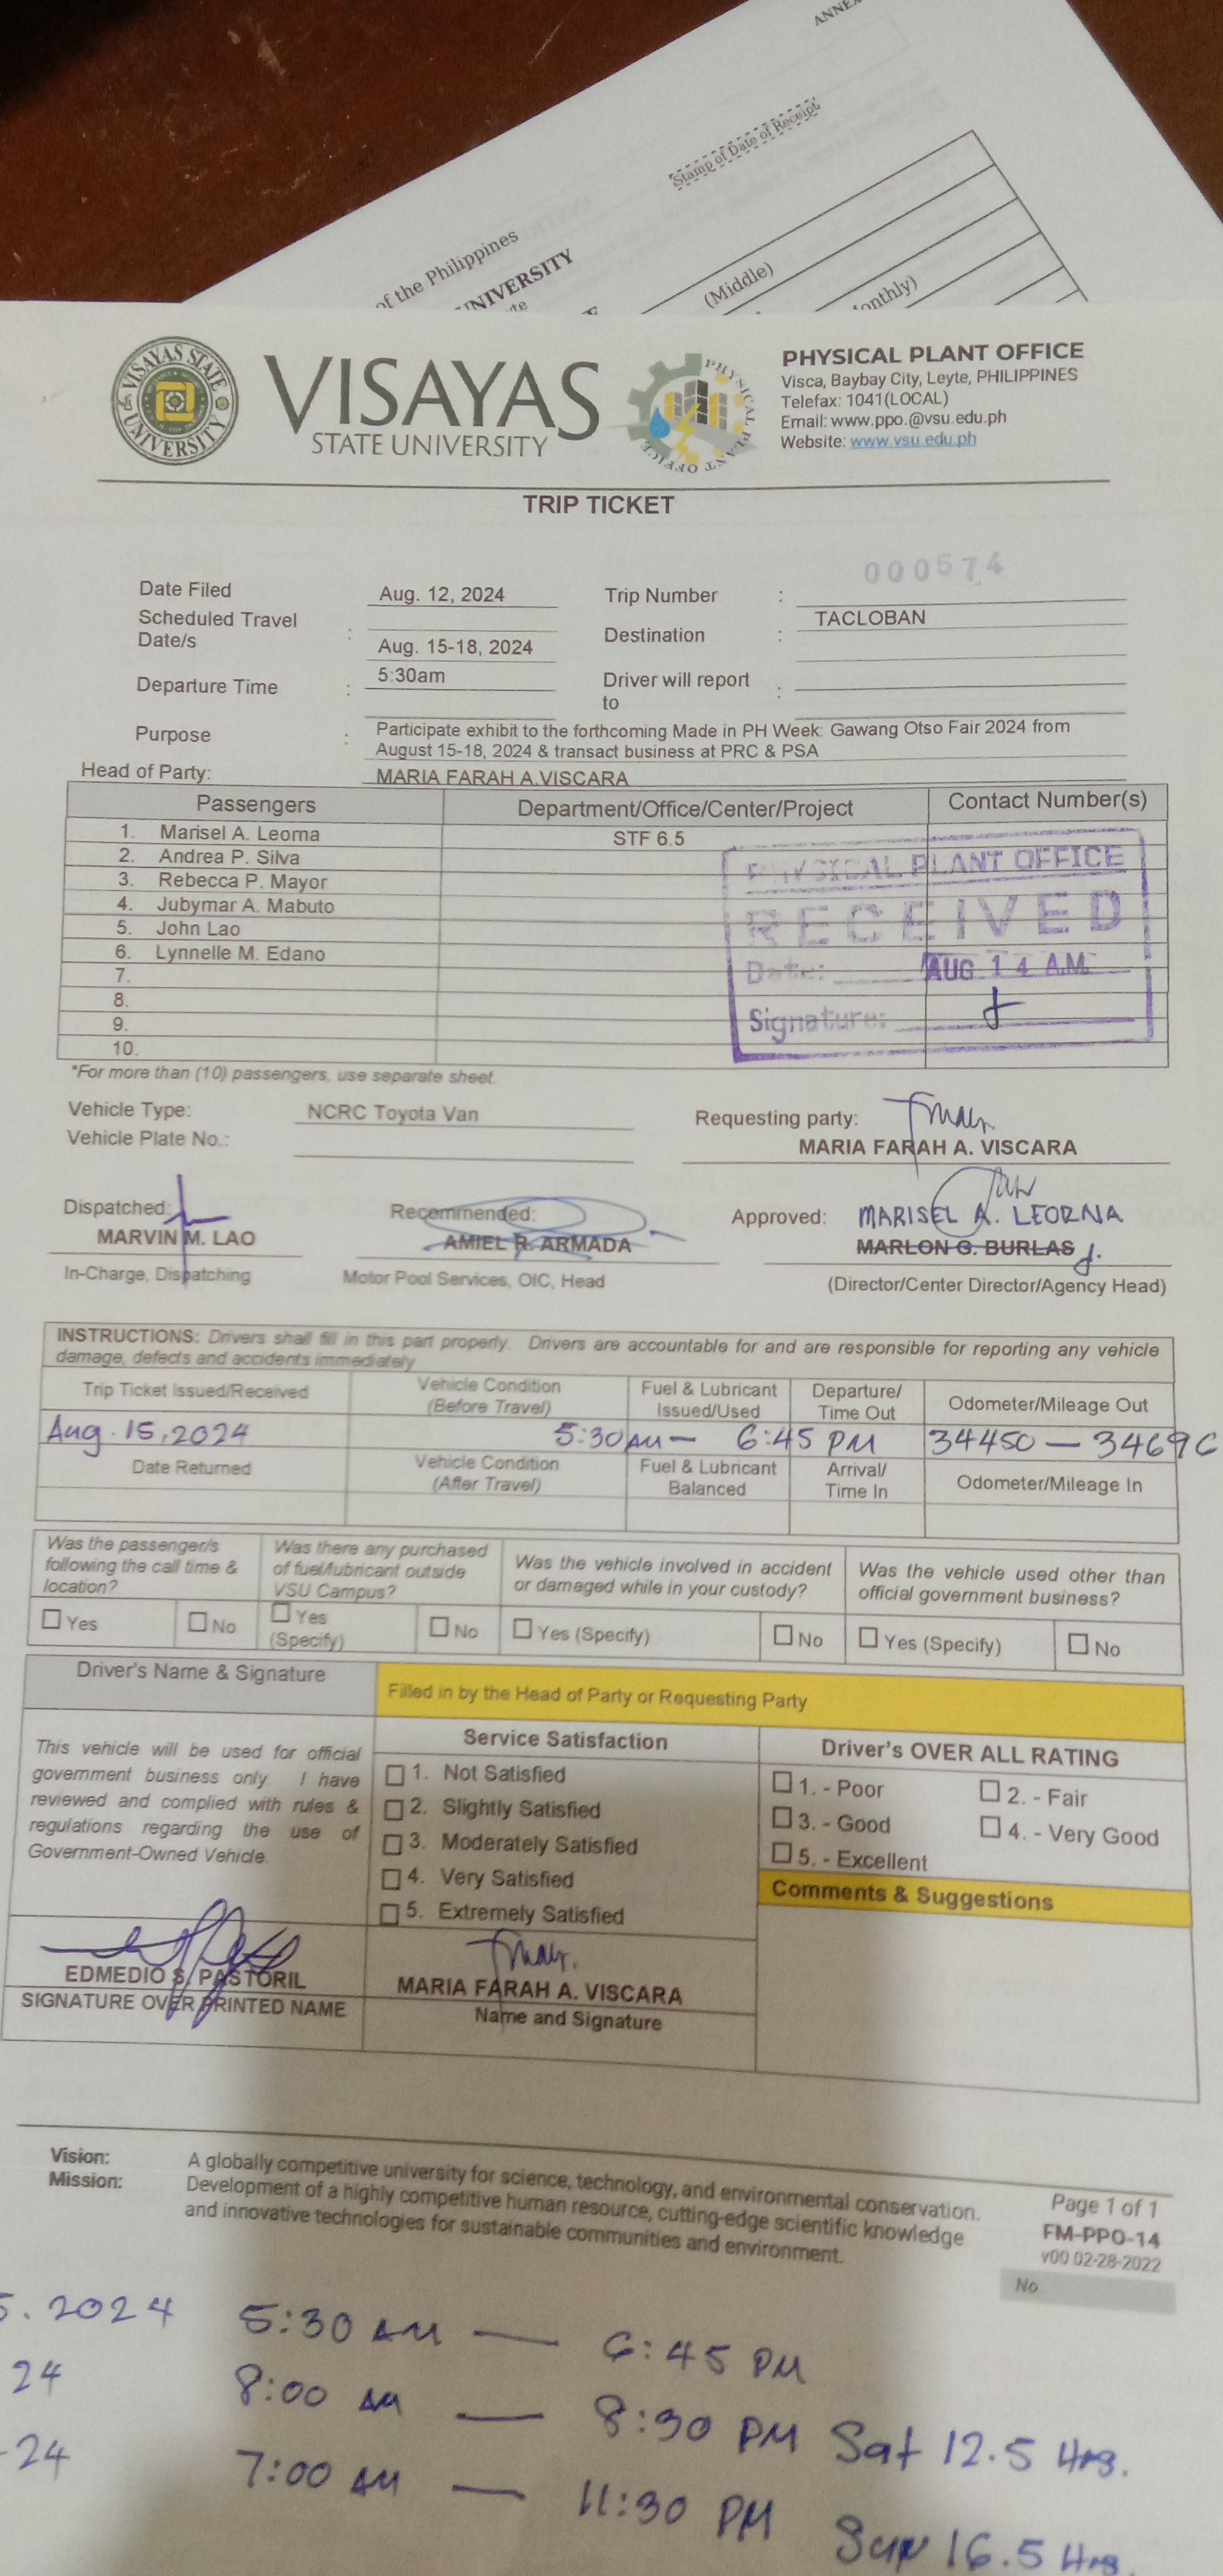 ANNEX
Stamp of Date of Receipt
of the Philippines
UNIVERSITY
(Middle)
VISAYAS STATE UNIVERSITY
VISAYAS
STATE UNIVERSITY
PHYSICAL PLANT OFFICE
PHYSICAL PLANT OFFICE
Visca, Baybay City, Leyte, PHILIPPINES
Telefax: 1041(LOCAL)
Email: www.ppo.@vsu.edu.ph
Website: www.vsu.edu.ph
TRIP TICKET
000574
Date Filed Aug. 12, 2024 Trip Number :
Scheduled Travel Date/s : Aug. 15-18, 2024 Destination : TACLOBAN
Departure Time : 5:30am Driver will report to :
Purpose : Participate exhibit to the forthcoming Made in PH Week: Gawang Otso Fair 2024 from
August 15-18, 2024 & transact business at PRC & PSA
Head of Party: MARIA FARAH A.VISCARA
Passengers Department/Office/Center/Project Contact Number(s)
1. Marisel A. Leoma STF 6.5
2. Andrea P. Silva
3. Rebecca P. Mayor
4. Jubymar A. Mabuto
5. John Lao
6. Lynnelle M. Edano
7.
8.
9.
10.
PHYSICAL PLANT OFFICE
RECEIVED
Date: AUG 14 A.M.
Signature:
*For more than (10) passengers, use separate sheet.
Vehicle Type: NCRC Toyota Van Requesting party:
Vehicle Plate No.: MARIA FARAH A. VISCARA
Dispatched: Recommended: Approved: MARISEL A. LEORNA
MARVIN M. LAO AMIEL R. ARMADA MARLON G. BURLAS
In-Charge, Dispatching Motor Pool Services, OIC, Head (Director/Center Director/Agency Head)
INSTRUCTIONS: Drivers shall fill in this part properly. Drivers are accountable for and are responsible for reporting any vehicle
damage, defects and accidents immediately
Trip Ticket Issued/Received Vehicle Condition (Before Travel) Fuel & Lubricant Issued/Used Departure/ Time Out Odometer/Mileage Out
Aug. 15, 2024 5:30 AM — 6:45 PM 34450 — 34696
Date Returned Vehicle Condition (After Travel) Fuel & Lubricant Balanced Arrival/ Time In Odometer/Mileage In
Was the passenger/s following the call time & location? Was there any purchased of fuel/lubricant outside VSU Campus? Was the vehicle involved in accident or damaged while in your custody? Was the vehicle used other than official government business?
Yes No Yes (Specify) No Yes (Specify) No Yes (Specify) No
Driver's Name & Signature
Filled in by the Head of Party or Requesting Party
This vehicle will be used for official
government business only. I have
reviewed and complied with rules &
regulations regarding the use of
Government-Owned Vehicle.
Service Satisfaction
1. Not Satisfied
2. Slightly Satisfied
3. Moderately Satisfied
4. Very Satisfied
5. Extremely Satisfied
Driver's OVER ALL RATING
1. - Poor 2. - Fair
3. - Good 4. - Very Good
5. - Excellent
Comments & Suggestions
EDMEDIO S. PASTORIL
SIGNATURE OVER PRINTED NAME
MARIA FARAH A. VISCARA
Name and Signature
Vision: A globally competitive university for science, technology, and environmental conservation.
Mission: Development of a highly competitive human resource, cutting-edge scientific knowledge
and innovative technologies for sustainable communities and environment.
Page 1 of 1
FM-PPO-14
v00 02-28-2022
No.
5. 2024 5:30 AM — 6:45 PM
24 8:00 AM — 8:30 PM Sat 12.5 Hrs.
-24 7:00 AM — 11:30 PM Sun 16.5 Hrs